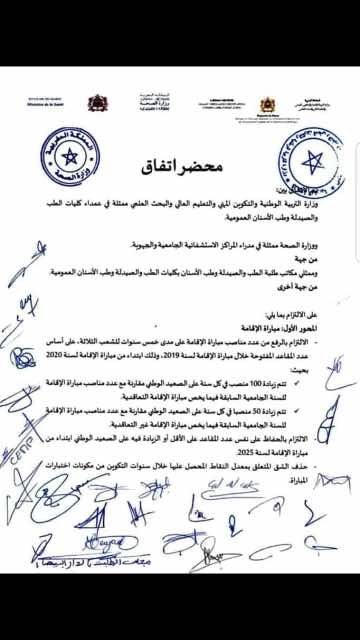 محضر اتفاق
وزارة التربية الوطنية والتكوين المهني والتعليم العالي والبحث العلمي ممثلة في عمداء كليات الطب
والصيدلة وطب الأسنان العمومية.
ووزارة الصحة ممثلة في مدراء المراكز الاستشفائية الجامعية والجهوية.
من جهة
وممثلي مكاتب طلبة الطب والصيدلة وطب الأسنان بكليات الطب والصيدلة وطب الأسنان العمومية.
من جهة أخرى
على الالتزام بما يلي:
المحور الأول: مباراة الإقامة
- الالتزام بالرفع من عدد مناصب مباراة الإقامة على مدى خمس سنوات للشعب الثلاثة، على أساس
عدد المقاعد المفتوحة خلال مباراة الإقامة لسنة 2019، وذلك ابتداء من مباراة الإقامة لسنة 2020
بحيث:
✓ تتم زيادة 100 منصب في كل سنة على الصعيد الوطني مقارنة مع عدد مناصب مباراة الإقامة
للسنة الجامعية السابقة فيما يخص مباراة الإقامة التعاقدية.
✓ تتم زيادة 50 منصب في كل سنة على الصعيد الوطني مقارنة مع عدد مناصب مباراة الإقامة
للسنة الجامعية السابقة فيما يخص مباراة الإقامة غير التعاقدية.
- الالتزام بالحفاظ على نفس عدد المقاعد على الأقل أو الزيادة فيه على الصعيد الوطني ابتداء من
مباراة الإقامة لسنة 2025.
- حذف الشق المتعلق بمعدل النقاط المحصل عليها خلال سنوات التكوين من مكونات اختبارات
المباراة.